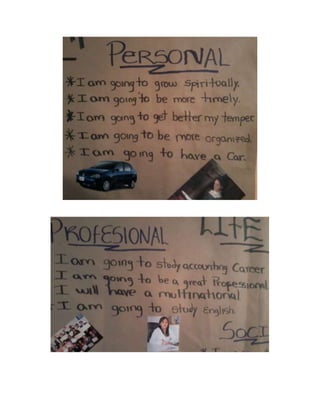 PERSONAL
* I am going to grow spiritually.
* I am going to be more timely.
* I am going to get better my temper
* I am going to be more organized.
* I am going to have a Car.
PROFESIONAL
LIFE
I am going to study accounting Career
I am going to be a great Professional
I will have a multinational
I am going to study English.
SOCI